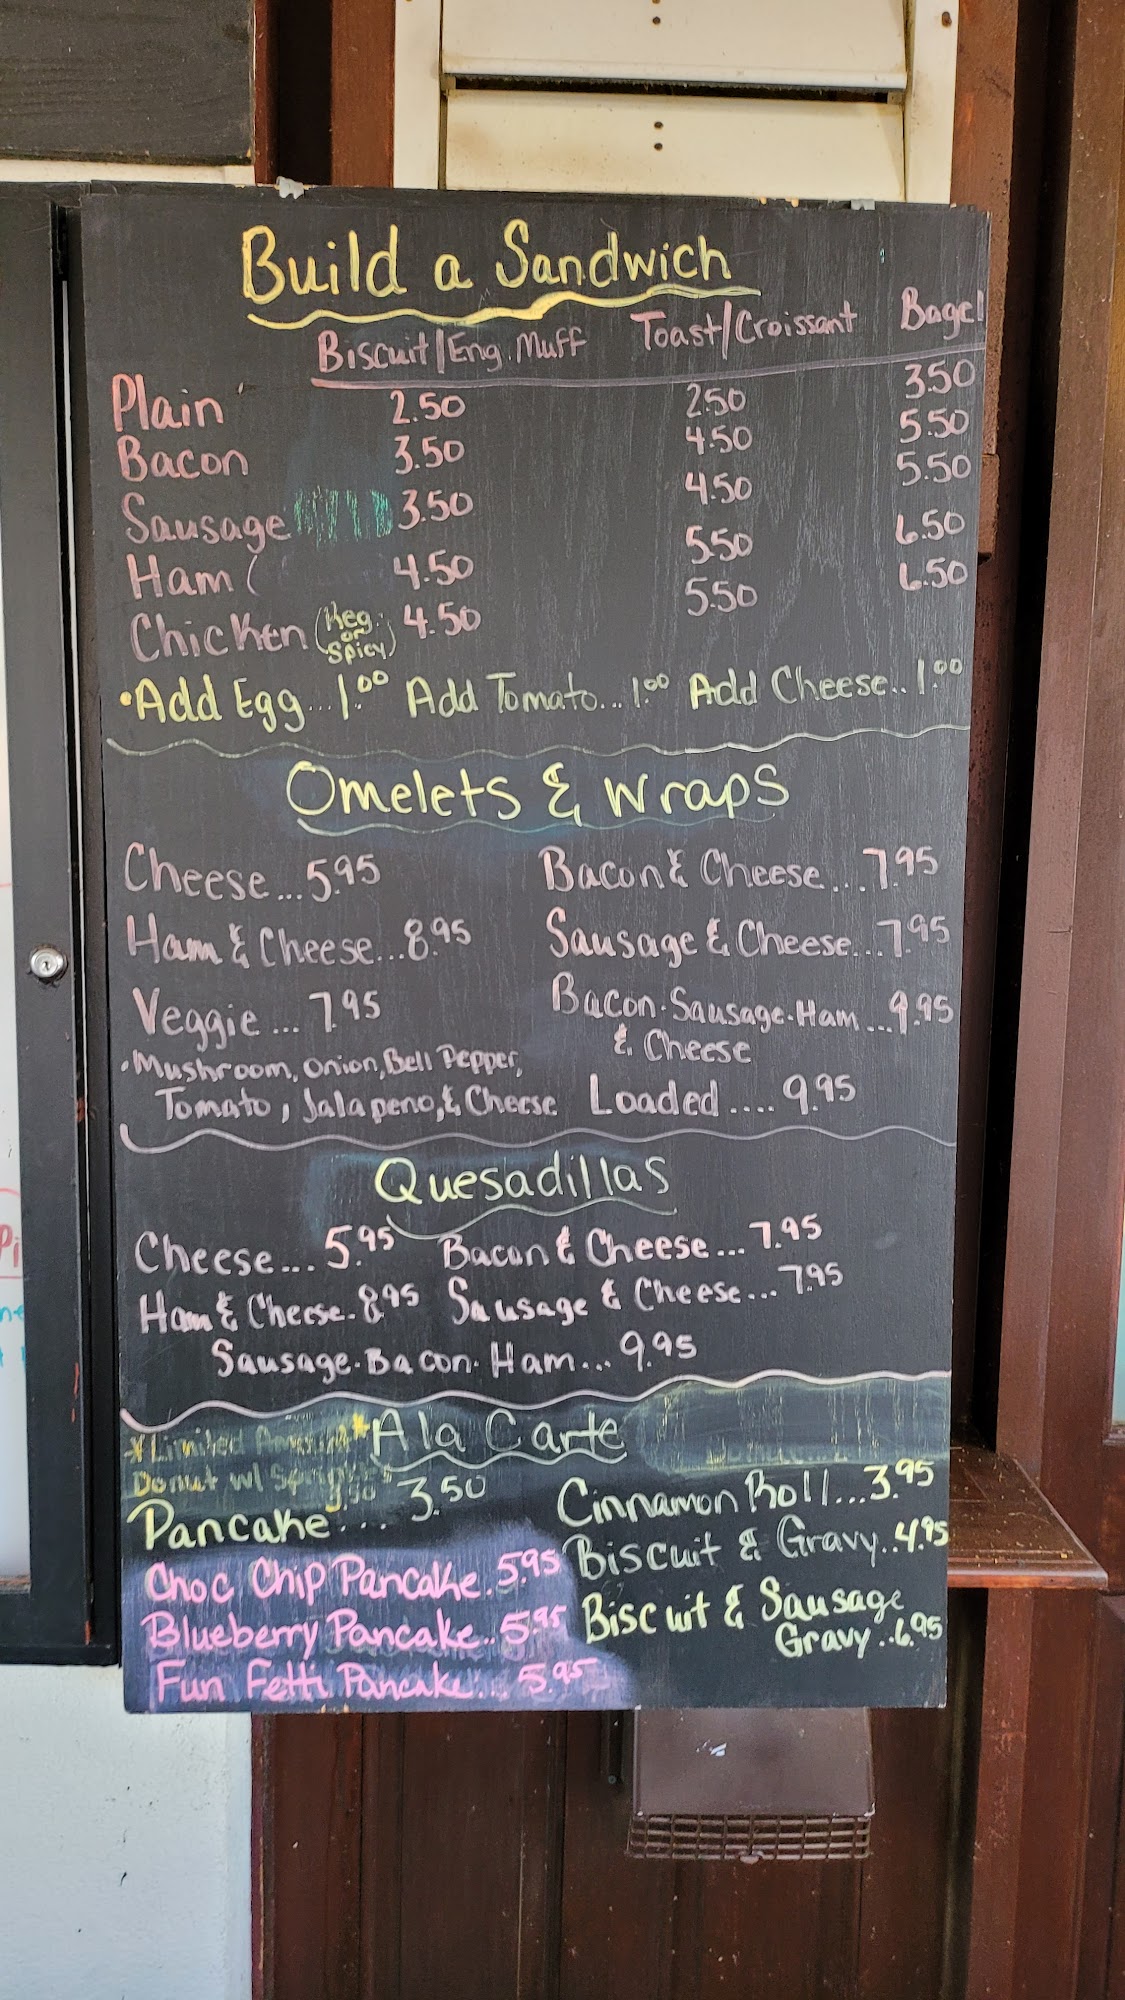 Build a Sandwich
Biscuit/Eng. Muff Toast/Croissant Bagel
Plain 2.50 2.50 3.50
Bacon 3.50 4.50 5.50
Sausage 3.50 4.50 5.50
Ham ( 4.50 5.50 6.50
Chicken (Reg. or Spicy) 4.50 5.50 6.50
•Add Egg...1.00 Add Tomato...1.00 Add Cheese..1.00
Omelets & Wraps
Cheese...5.95 Bacon & Cheese...7.95
Ham & Cheese...8.95 Sausage & Cheese...7.95
Veggie...7.95 Bacon.Sausage.Ham...9.95
& Cheese
•Mushroom, Onion, Bell Pepper,
Tomato, Jalapeno, & Cheese Loaded....9.95
Quesadillas
Cheese...5.95 Bacon & Cheese...7.95
Ham & Cheese.8.95 Sausage & Cheese...7.95
Sausage.Bacon.Ham...9.95
*Limited * A la Carte
Donut w/
Pancake... 3.50 Cinnamon Roll...3.95
Choc Chip Pancake.5.95 Biscuit & Gravy..4.95
Blueberry Pancake..5.95 Biscuit & Sausage
Gravy..6.95
Fun Fetti Pancake...5.95